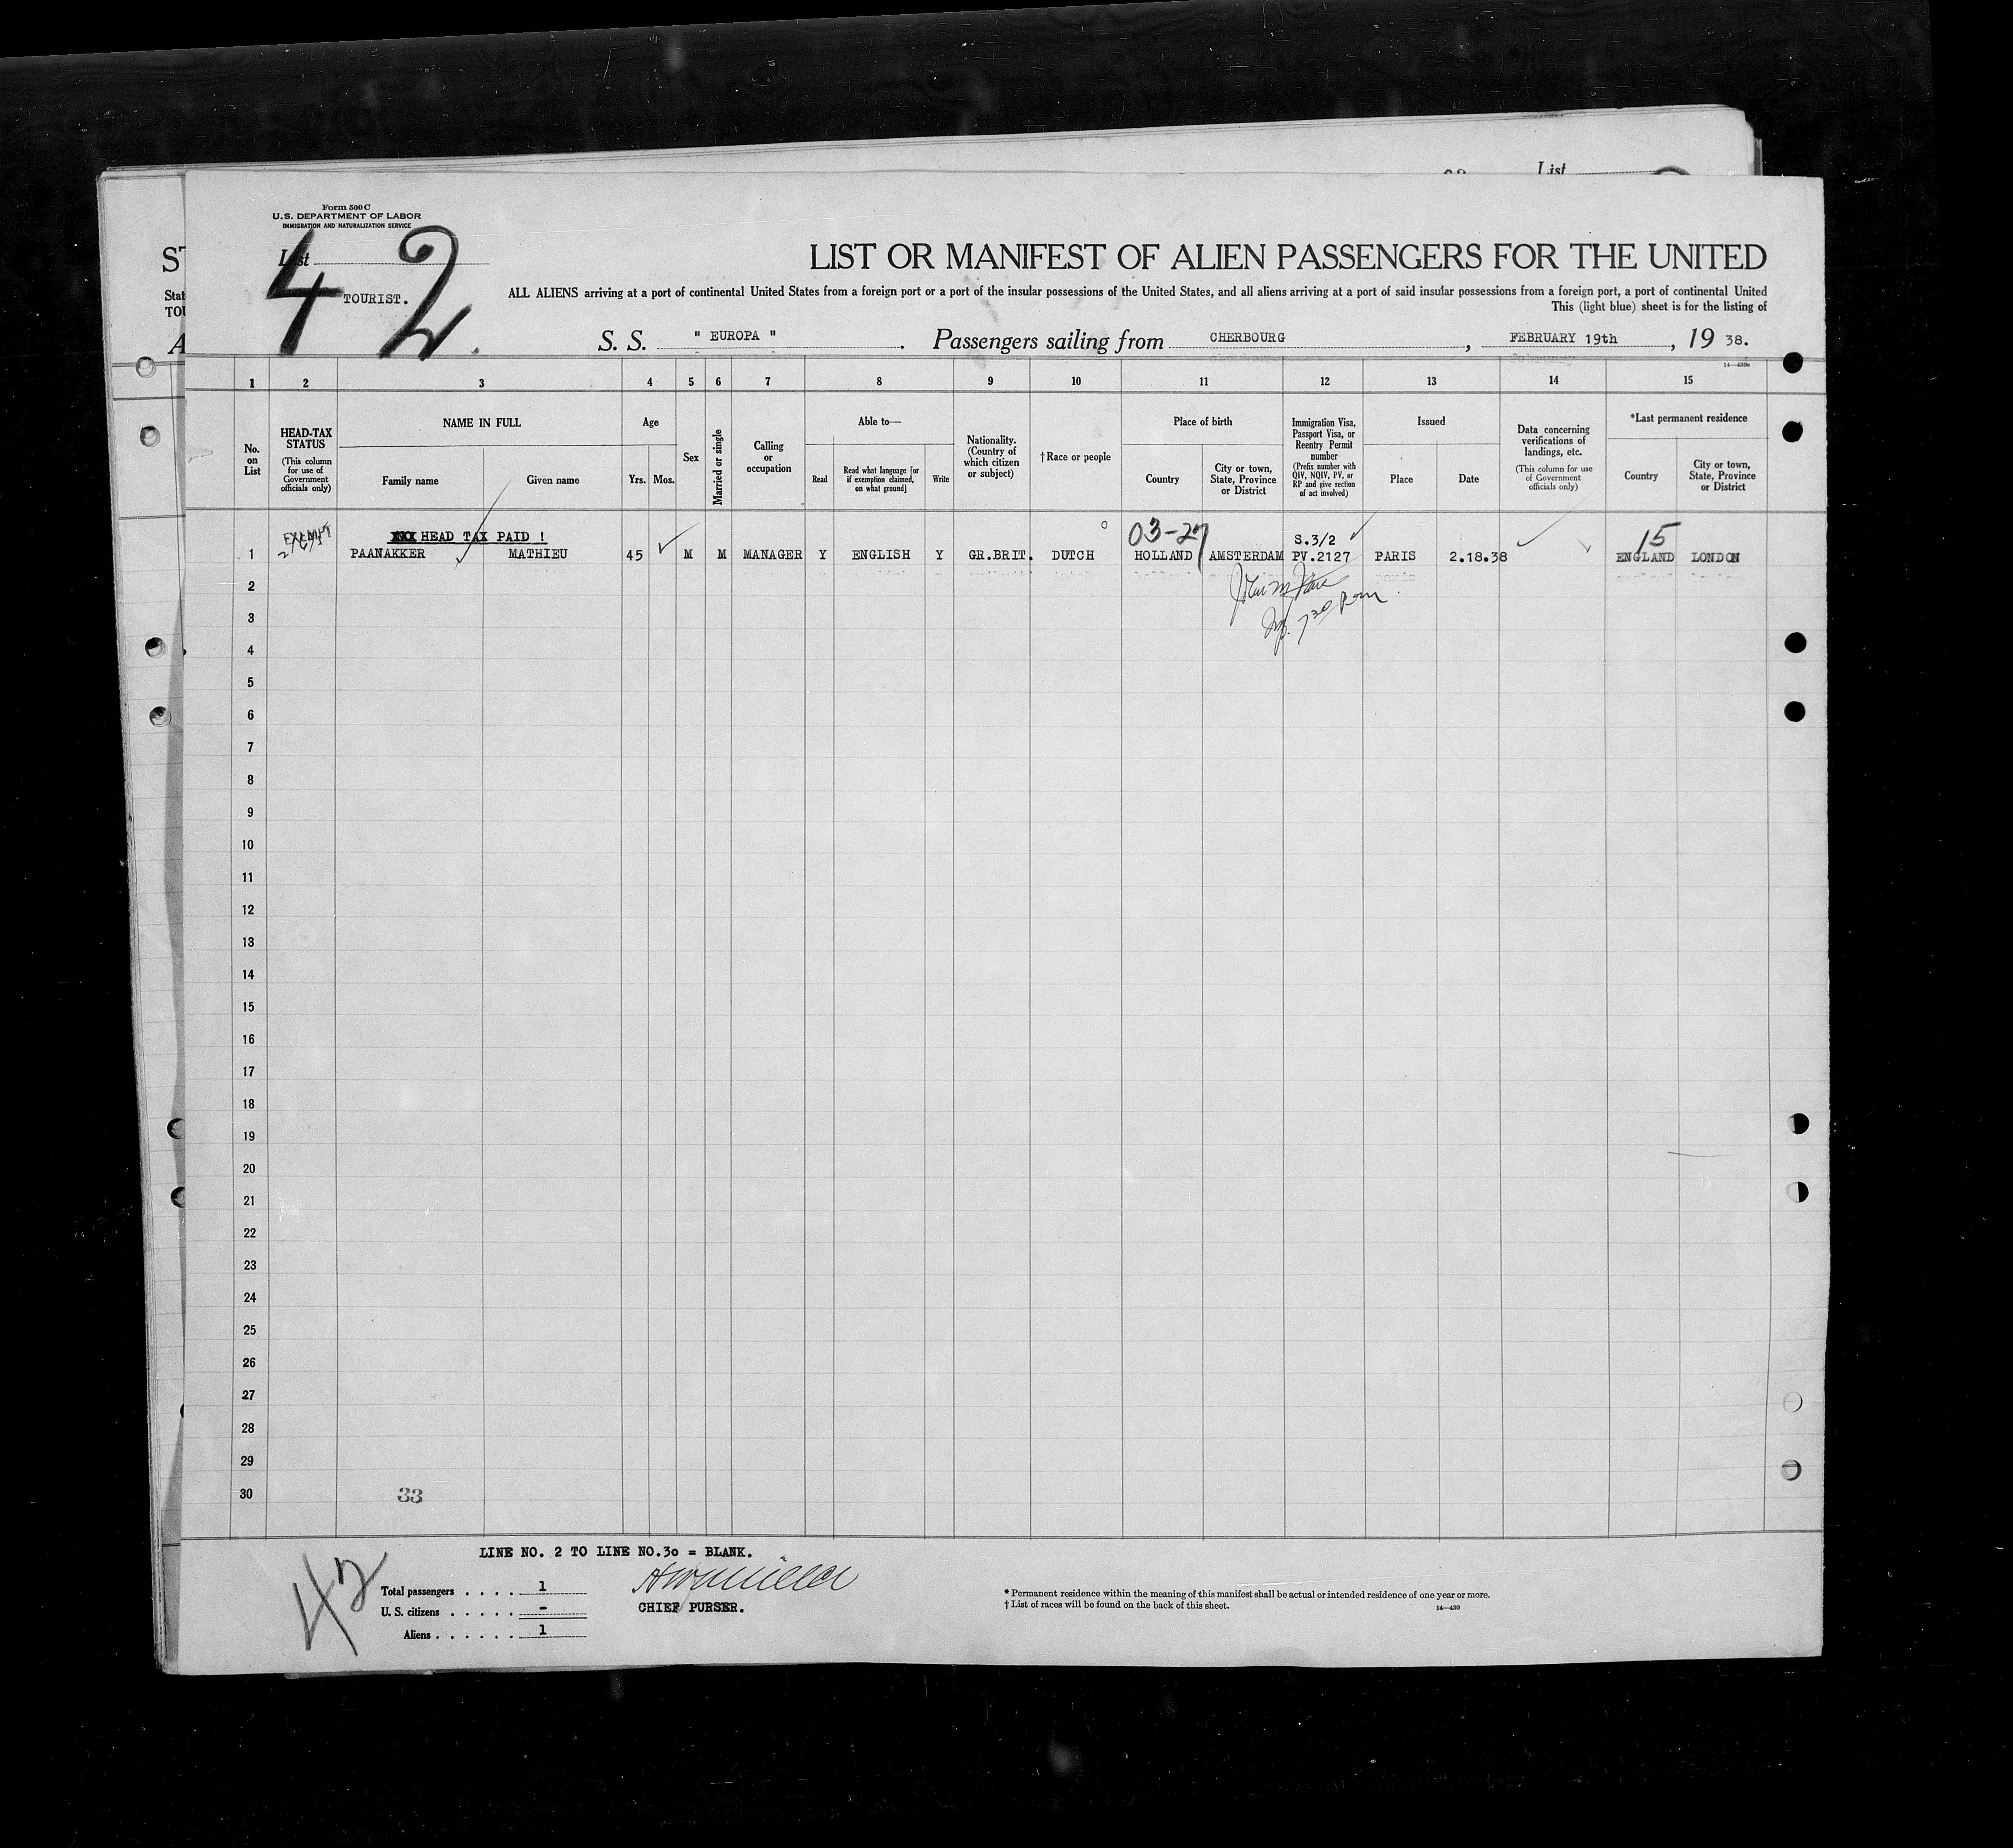 List
Form 500 C
U.S. DEPARTMENT OF LABOR
IMMIGRATION AND NATURALIZATION SERVICE
List
42
TOURIST.
LIST OR MANIFEST OF ALIEN PASSENGERS FOR THE UNITED
ALL ALIENS arriving at a port of continental United States from a foreign port or a port of the insular possessions of the United States, and all aliens arriving at a port of said insular possessions from a foreign port, a port of continental United
This (light blue) sheet is for the listing of
S. S. " EUROPA ". Passengers sailing from CHERBOURG, FEBRUARY 19th, 19 38.
14—430c
1 2 3 4 5 6 7 8 9 10 11 12 13 14 15
No. on List
HEAD-TAX STATUS (This column for use of Government officials only)
NAME IN FULL
Family name
Given name
Age
Yrs. Mos.
Sex
Married or single
Calling or occupation
Able to—
Read
Read what language [or if exemption claimed, on what ground]
Write
Nationality. (Country of which citizen or subject)
†Race or people
Place of birth
Country
City or town, State, Province or District
Immigration Visa, Passport Visa, or Reentry Permit number (Prefix number with QIV, NQIV, PV, or RP and give section of act involved)
Issued
Place
Date
Data concerning verifications of landings, etc. (This column for use of Government officials only)
*Last permanent residence
Country
City or town, State, Province or District
EXEMPT
XXX HEAD TAX PAID !
03-27
S.3/2
15
1 PAANAKKER MATHIEU 45 M M MANAGER Y ENGLISH Y GR.BRIT. DUTCH HOLLAND AMSTERDAM PV.2127 PARIS 2.18.38 ENGLAND LONDON
2
3
7 30 pm
4
5
6
7
8
9
10
11
12
13
14
15
16
17
18
19
20
21
22
23
24
25
26
27
28
29
30
33
LINE NO. 2 TO LINE NO.30 = BLANK.
42
Total passengers . . . . 1
U. S. citizens . . . . . -
Aliens . . . . . . 1
CHIEF PURSER.
* Permanent residence within the meaning of this manifest shall be actual or intended residence of one year or more.
† List of races will be found on the back of this sheet.
14—430